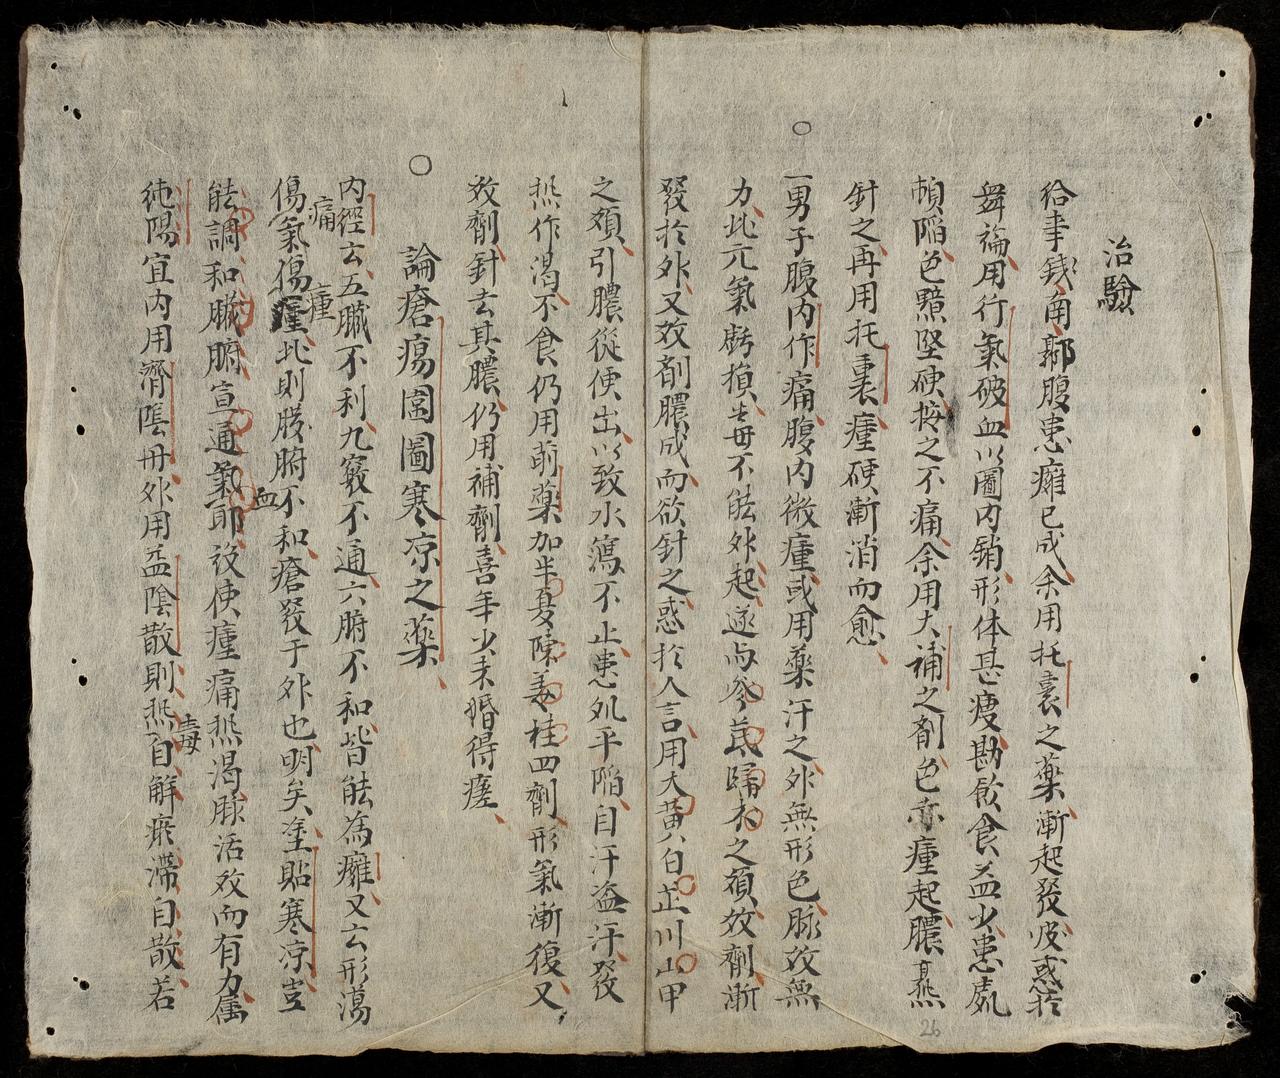 治驗
給事錢角鄰腹患癰已成余用托裏之藥漸起發彼惑於
舞論用行氣破血以圖内銷形体甚瘦勘飲食益少患處
頓陷色黯堅硬按之不痛余用大補之剤色赤瘇起膿熹
針之再用托裏瘇硬漸消而愈
○
一男子腹内作痛腹内微瘇或用藥汗之外無形色脉效無
力此元氣虧損毒不能外起遂与參芪歸朮之類效劑漸
發於外又效剤膿成而欲針之惑於人言用大黄白芷川山甲
之類引膿從便出以致水瀉不止患処平陷自汗盗汗發
熱作渴不食仍用前藥加半夏陳姜桂四劑形氣漸復又
效劑針去其膿仍用補劑喜年少未婚得瘥
○
論瘡瘍圍圖寒凉之藥
内經云五臟不利九竅不通六腑不和皆能為癰又云形蕩
痛
瘇
傷氣傷瘇此則臟腑不和瘡發于外也明矣塗貼寒凉豈
血
能調和臟腑宣通氣耶設使瘇痛熱渴脉活效而有力属
純陽宜内用濟陰丹外用益陰散則熱自解瘀滞自散若
毒
26